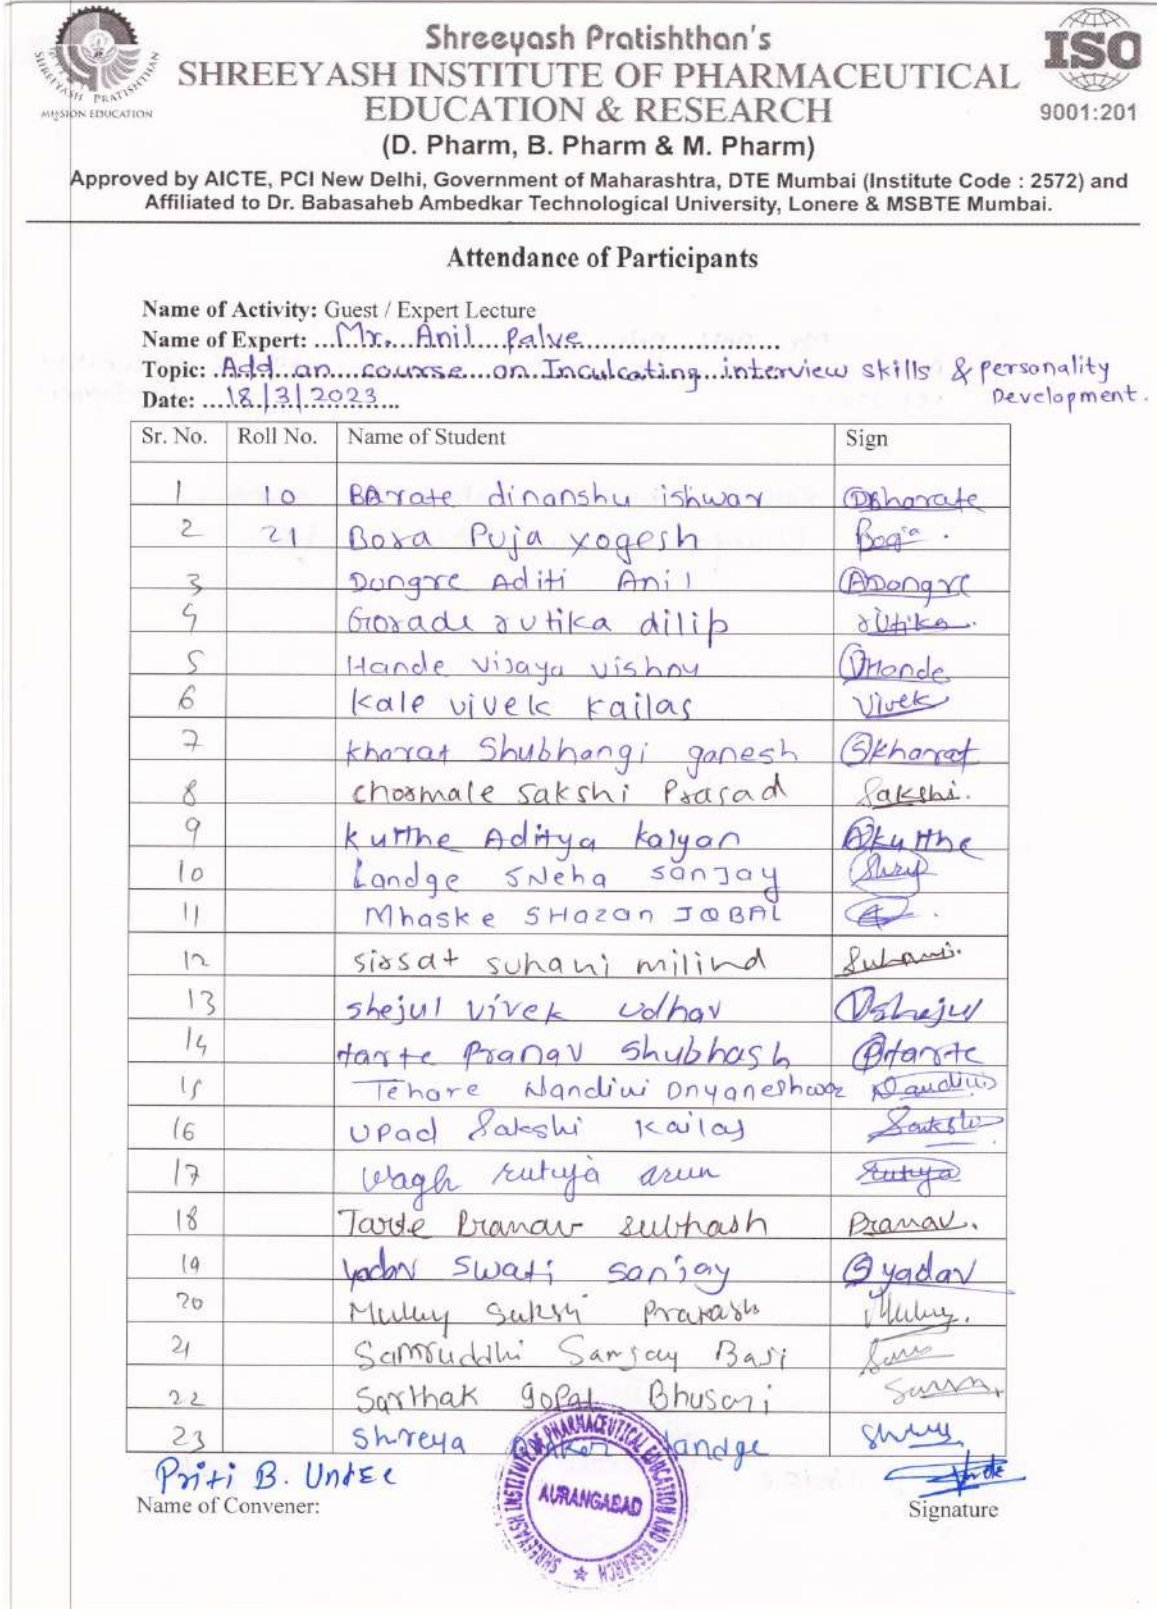 Shreeyash Pratishthan's
SHREEYASH INSTITUTE OF PHARMACEUTICAL
EDUCATION & RESEARCH
(D. Pharm, B. Pharm & M. Pharm)
Approved by AICTE, PCI New Delhi, Government of Maharashtra, DTE Mumbai (Institute Code : 2572) and
Affiliated to Dr. Babasaheb Ambedkar Technological University, Lonere & MSBTE Mumbai.
SHREEYASH PRATISHTHAN
MISSION EDUCATION
ISO
9001:201
Attendance of Participants
Name of Activity: Guest / Expert Lecture
Name of Expert: ...Mr. Anil Palve...
Topic: Add an course on Inculcating interview skills & personality
Development.
Date: ...18/3/2023...
Sr. No. Roll No. Name of Student Sign
1 10 BArate dinanshu ishwar DBharate
2 21 Bora Puja yogesh
3 Dongre Aditi Anil ADongre
4 Gorade rutika dilip rutika
5 Hande vijaya vishnu VHande
6 kale vivek kailas Vivek
7 kharat Shubhangi ganesh Skharat
8 chormale sakshi Prasad Sakshi.
9 kutthe Aditya kalyan Akutthe
10 Landge SNeha sanjay
11 Mhaske SHazan IQBAL
12 sirsat suhani milind Suhani.
13 shejul vivek udhav Vshejul
14 tarte Pranav Shubhash Ptarte
15 Tehare Nandini Dnyaneshwar Nandini
16 Upad Sakshi Kailas Sakshi
17 Wagh rutuja arun rutuja
18 Tarte Pranav subhash Pranav.
19 yadav swati sanjay Syadav
20 Muley Sakshi Prakash Muley.
21 Samruddhi Sanjay Basi
22 Sarthak gopal Bhusari
23 Shreya landge
Priti B. Unde
Name of Convener:
Signature
SHREEYASH INSTITUTE OF PHARMACEUTICAL EDUCATION AND RESEARCH
AURANGABAD